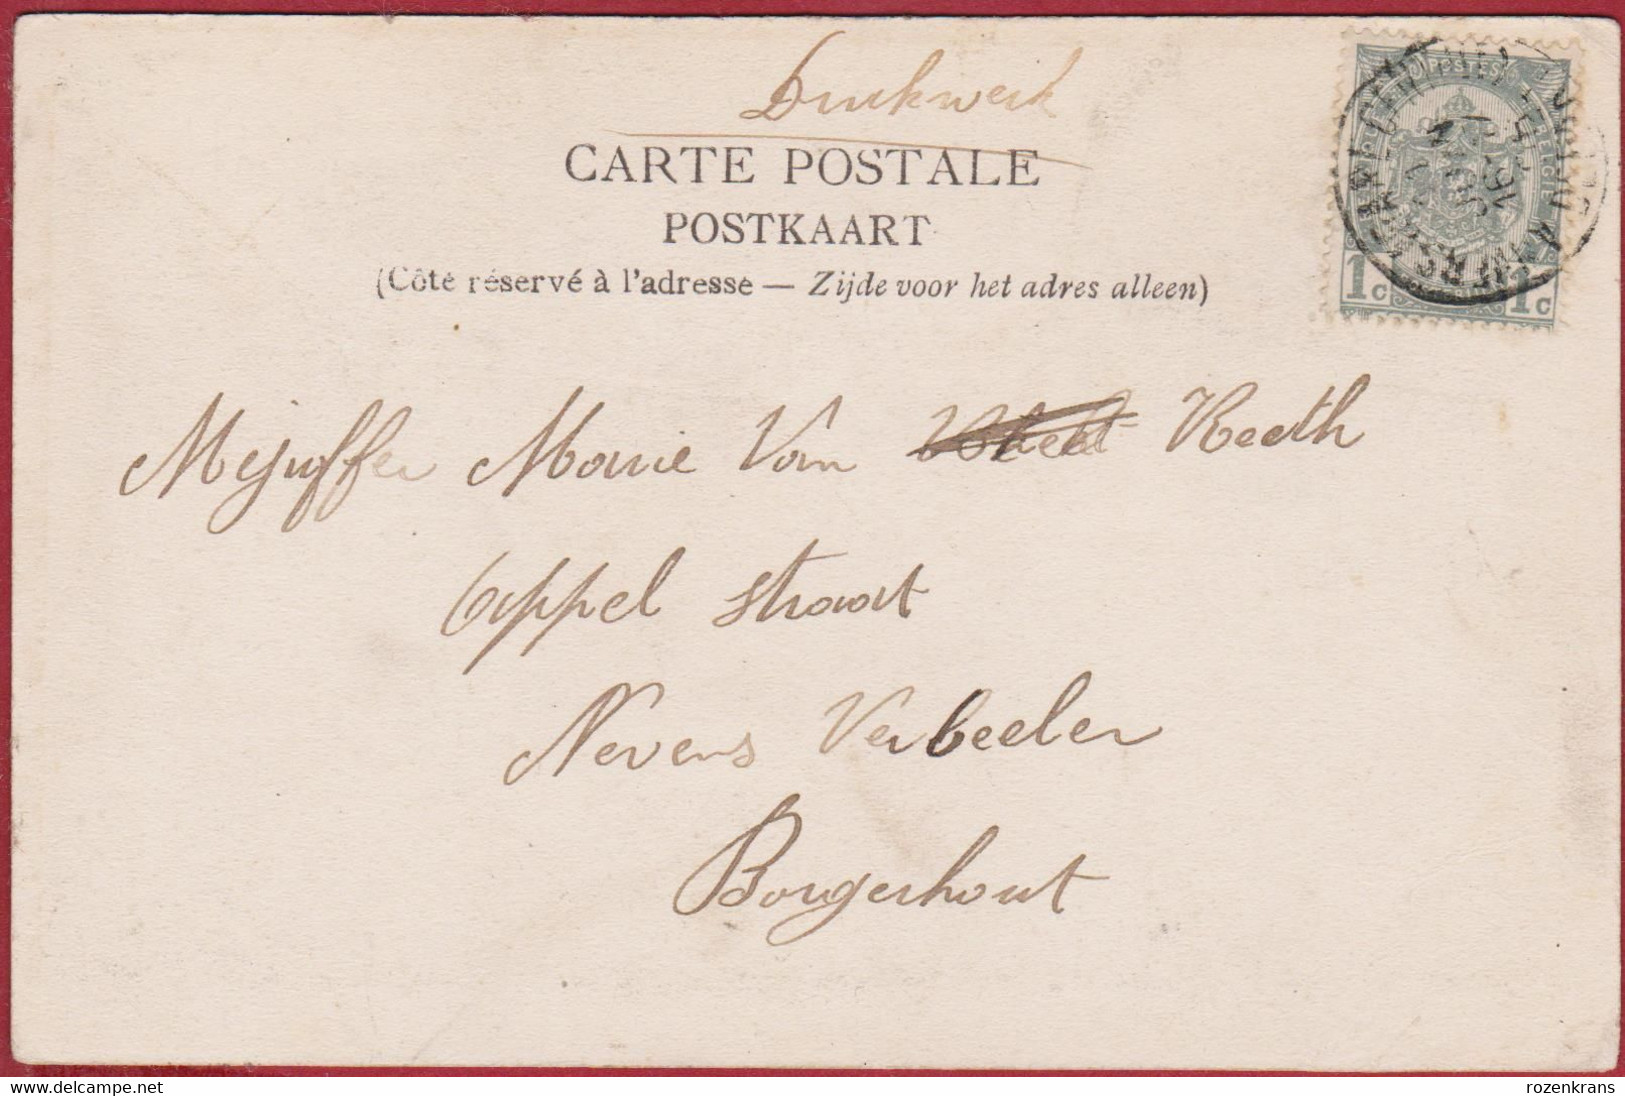 Drukwerk
CARTE POSTALE
POSTKAART
(Côté réservé à l'adresse — Zijde voor het adres alleen)
POSTES
BELGIË
1c 1c
Mejuffer Marie Van Reeth
Appel straat
Nevens Verbeelen
Borgerhout
© for delcampe.net
rozenkrans